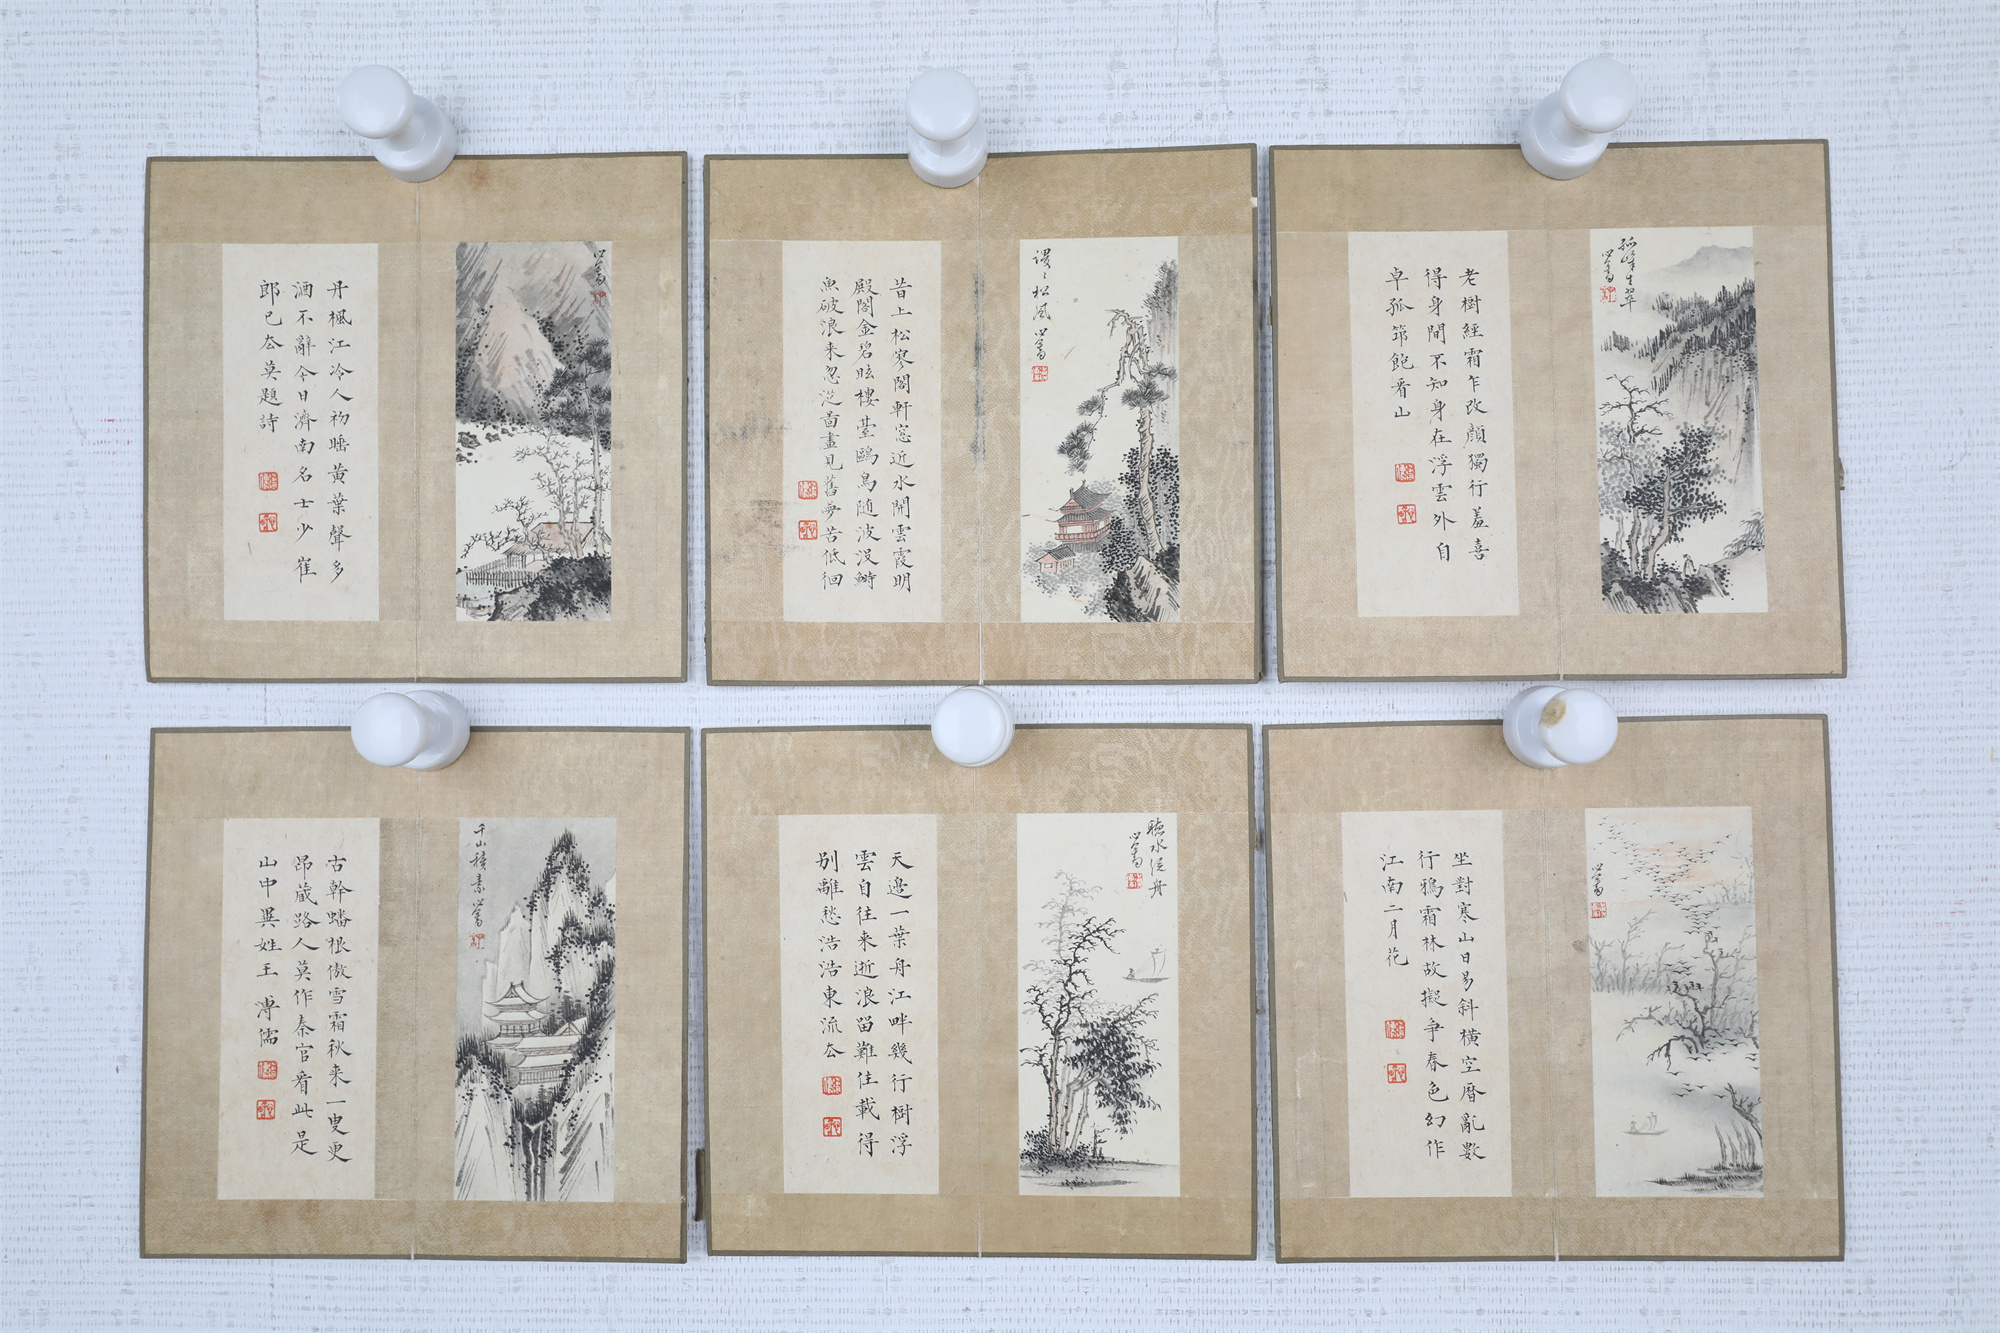 丹楓江冷人初𨢄黃葉聲多
酒不辭今日濟南名士少崔
郎已厺莫題詩
心畬
昔上松寥閣軒窓近水開雲霞明
殿閣金碧眩樓䑓鷗鳥随波没
魚破浪来忽従圖畫見舊夢苦低徊
謖〻松風 心畬
老樹經霜乍改顔獨行羞喜
得身間不知身在浮雲外自
卓孤筇飽看山
孤峰生翠
心畬
古幹蟠根傲雪霜秋来一叟更
昂蔵路人莫作秦官看此是
山中異姓王 溥儒
千山積素 心畬
天邉一葉舟江畔幾行樹浮
雲自往来逝浪留難住載得
别離愁浩浩東流厺
聴水従舟
心畬
坐對寒山日易斜橫空暦亂數
行鴉霜林故擬争春色幻作
江南二月花
心畬